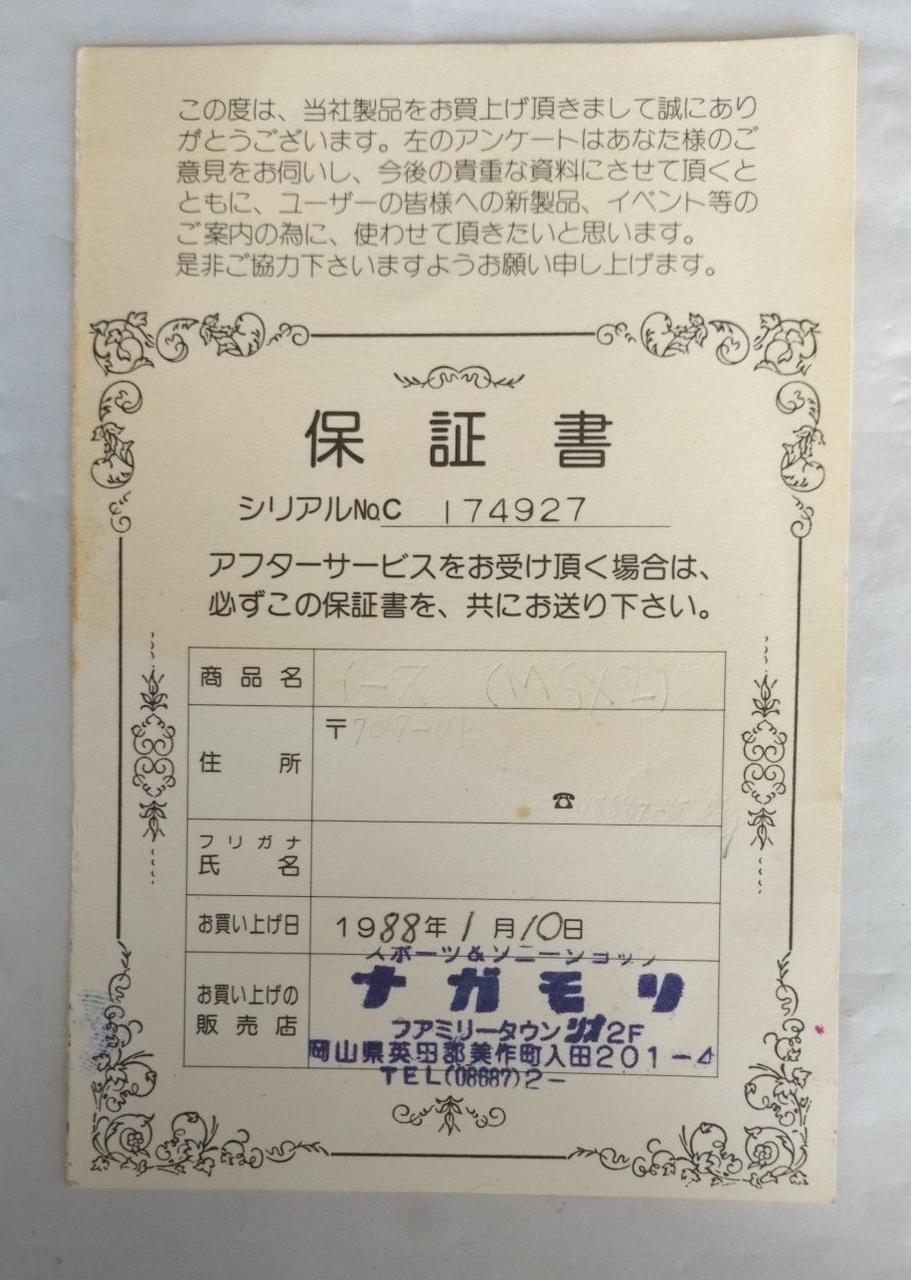 この度は、当社製品をお買上げ頂きまして誠にあり
がとうございます。左のアンケートはあなた様のご
意見をお伺いし、今後の貴重な資料にさせて頂くと
ともに、ユーザーの皆様への新製品、イベント等の
ご案内の為に、使わせて頂きたいと思います。
是非ご協力下さいますようお願い申し上げます。
保証書
シリアルNo.C 174927
アフターサービスをお受け頂く場合は、
必ずこの保証書を、共にお送り下さい。
商品名 イース (MSX2)
〒707-01
住所
☎
フリガナ
氏名
お買い上げ日 1988年1月10日
スポーツ&ソニーショップ
ナガモリ
お買い上げの
販売店
ファミリータウンリオ2F
岡山県英田郡美作町入田201-4
TEL(08687)2-